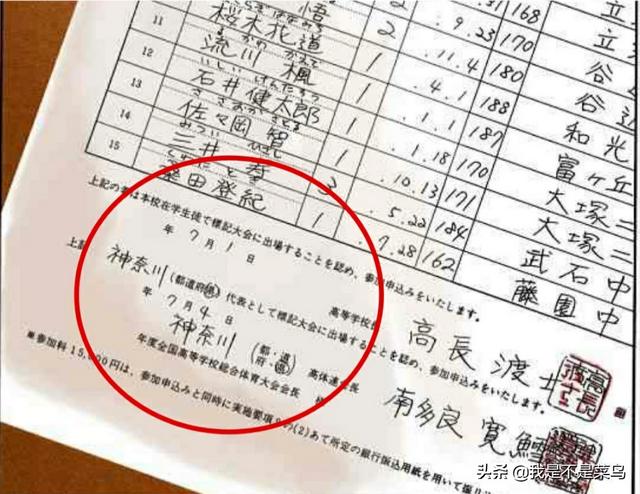 .31 168 立
悟 2 .9.23 170 立
さくらぎはなみち
桜木花道 2 .11.4 180 谷
るかわ かえで
11 流川 楓 1 .4.1 188 谷
いしい けんたろう
12 石井健太郎 1 .1.1 187 和光
ささおか さとる
13 佐々岡 智 1 .1.18 170 富ヶ丘
みつい ひさし
14 三井 寿 3 .10.13 171 大塚二
.5.22 184 大塚二
武石中
15 桑田登紀 1 .7.28 162 藤園中
上記の者は本校在学生徒で標記大会に出場することを認め、参加申込みをいたします。
年 7月 1日
高等学校長 高長 渡 ㊞
上記 神奈川(都道府県)代表として標記大会に出場することを認め、参加申込みをいたします。
年 7月 4日
神奈川(都・道府・県)高体連会長 南多良 寛
年度全国高等学校総合体育大会会長 様
※参加料15,000円は、参加申込みと同時に実施要項9の(2)あて所定の銀行振込用紙を用いて振り
头条 @我是不是菜鸟